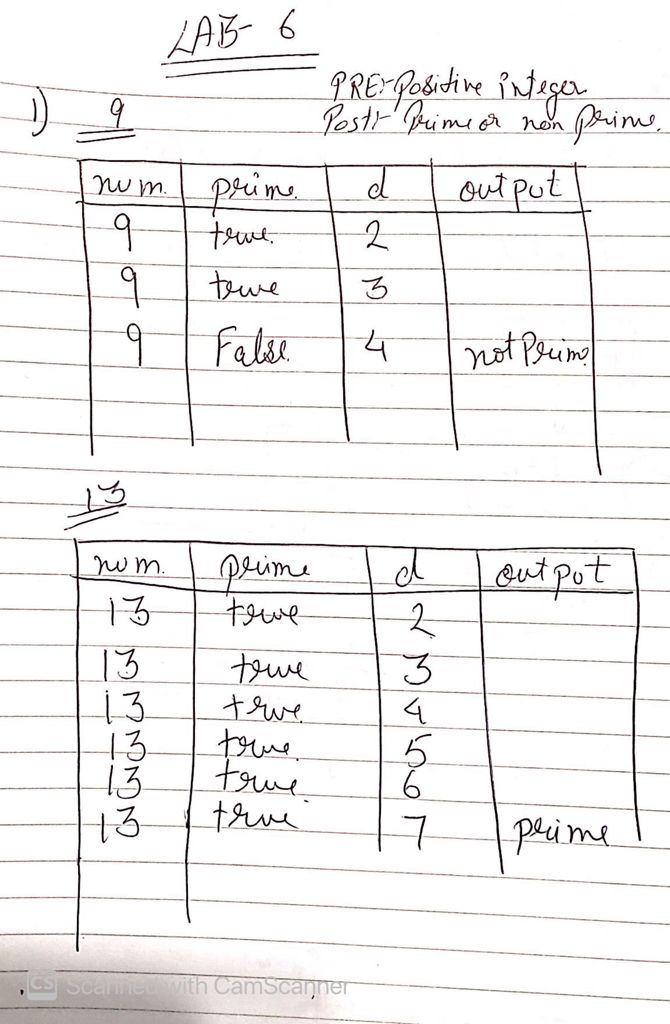 LAB- 6
PRE:- Positive integer
1) 9 Post:- Prime or non prime.
num. prime. d output
9 true. 2
9 true 3
9 False. 4 not Prime
13
num. prime d output
13 true 2
13 true 3
13 true 4
13 true. 5
13 true. 6
13 true 7 prime
CS Scanned with CamScanner